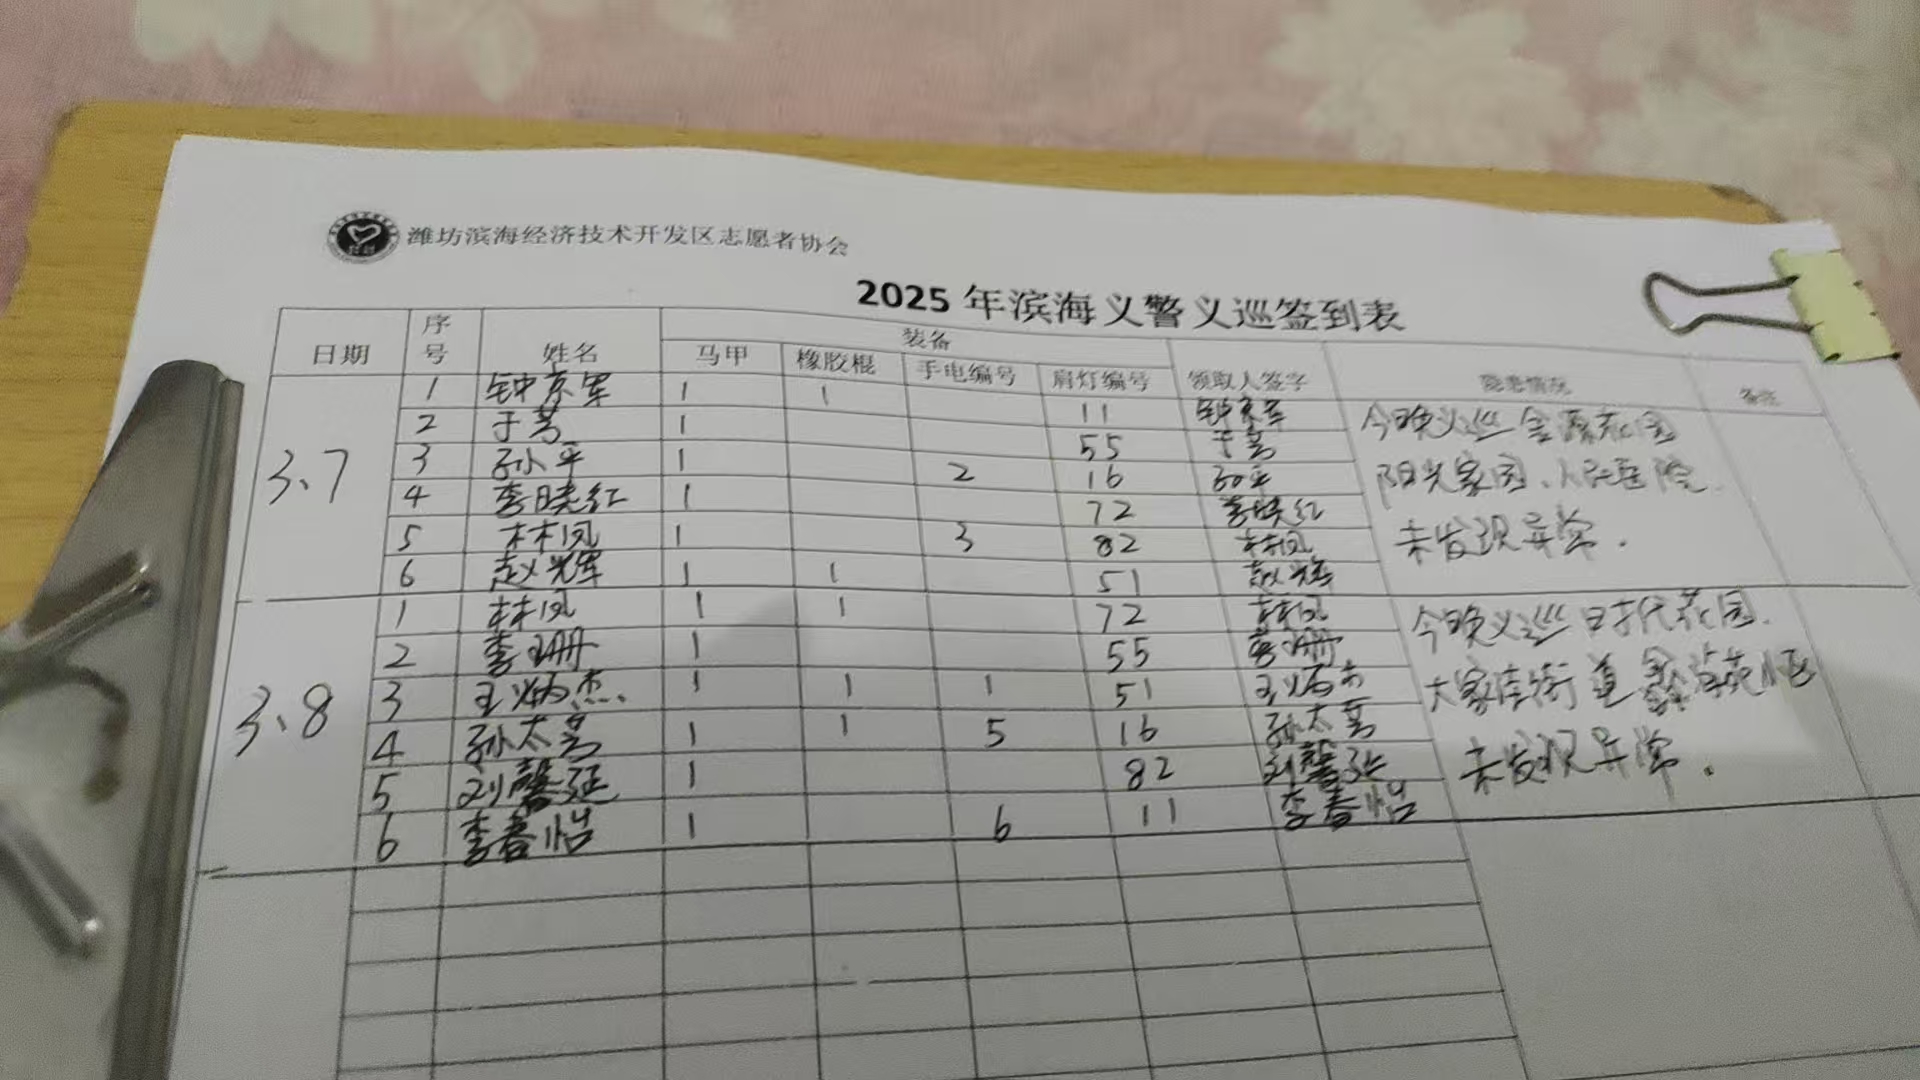 潍坊滨海经济技术开发区志愿者协会
2025年滨海义警义巡签到表
日期 序号 姓名 装备 领取人签字 隐患情况 备注
马甲 橡胶棍 手电编号 肩灯编号
3、7
1 钟京军 1 1 11 钟京军
2 于芳 1 55 于芳
3 孙平 1 2 16 孙平
4 李晓红 1 72 李晓红
5 林凤 1 3 82 林凤
6 赵光辉 1 1 51
今晚义巡金源花园
阳光家园、人民医院
未发现异常.
3、8
1 林凤 1 1 72 林凤
2 李珊 1 55 李珊
3 王炳杰 1 1 1 51 王炳杰
4 孙太 1 1 5 16 孙太
5 刘馨延 1 82 刘馨延
6 李春怡 1 6 11 李春怡
今晚义巡时代花园.
大家洼街道鑫海苑小区
未发现异常.